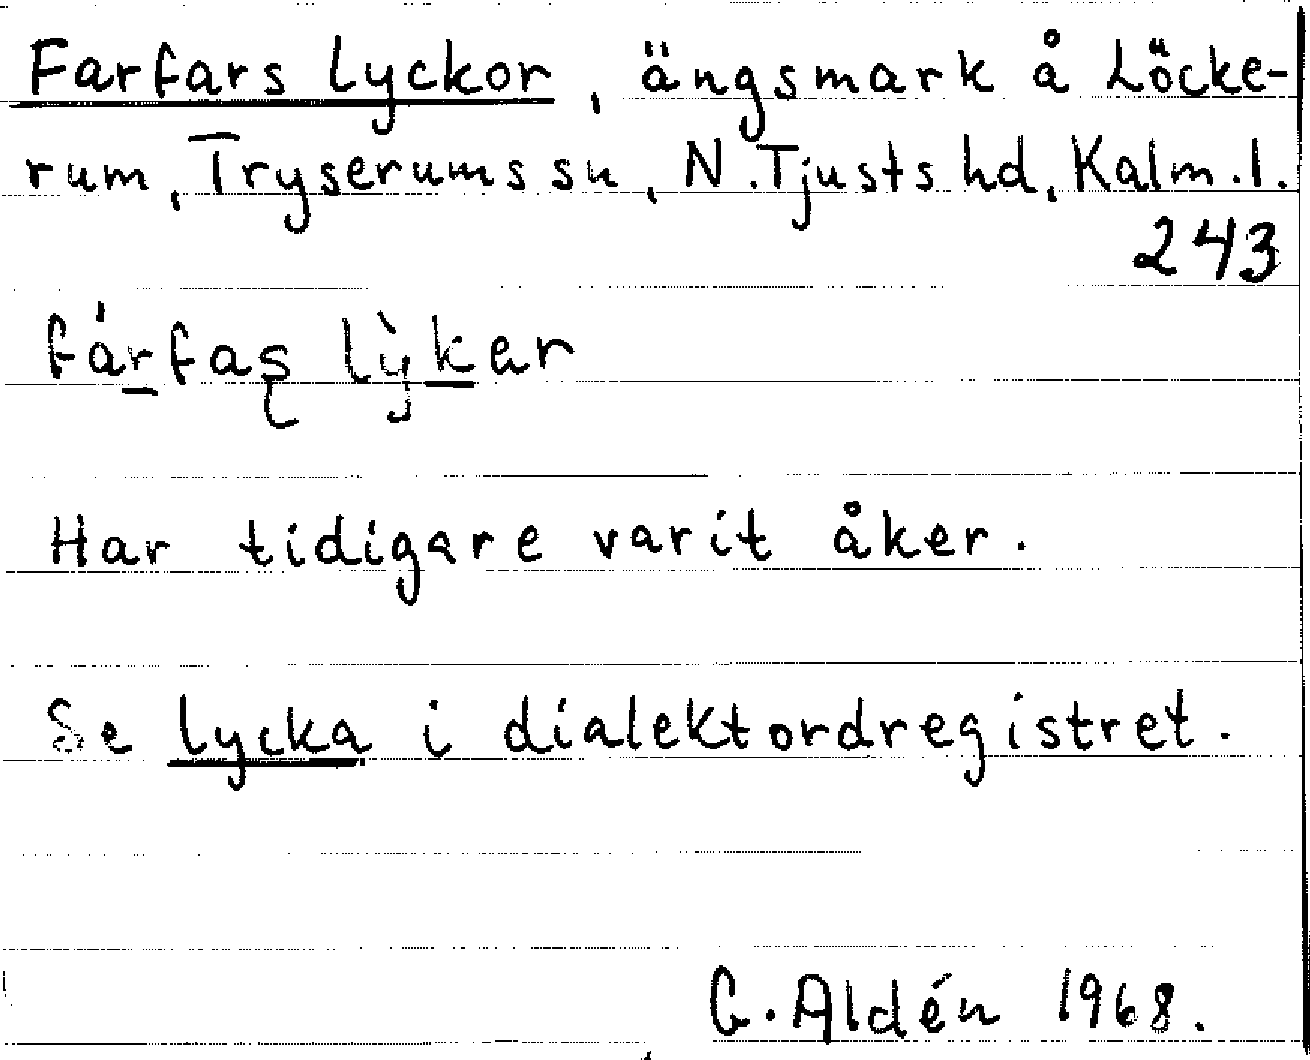 Farfars lyckor, ängsmark å Löcke-
rum, Tryserums sn, N. Tjusts hd, Kalm. l.
243
fárfaʂ lỳker
Har tidigare varit åker.
Se lycka i dialektordregistret.
G. Aldén 1968.